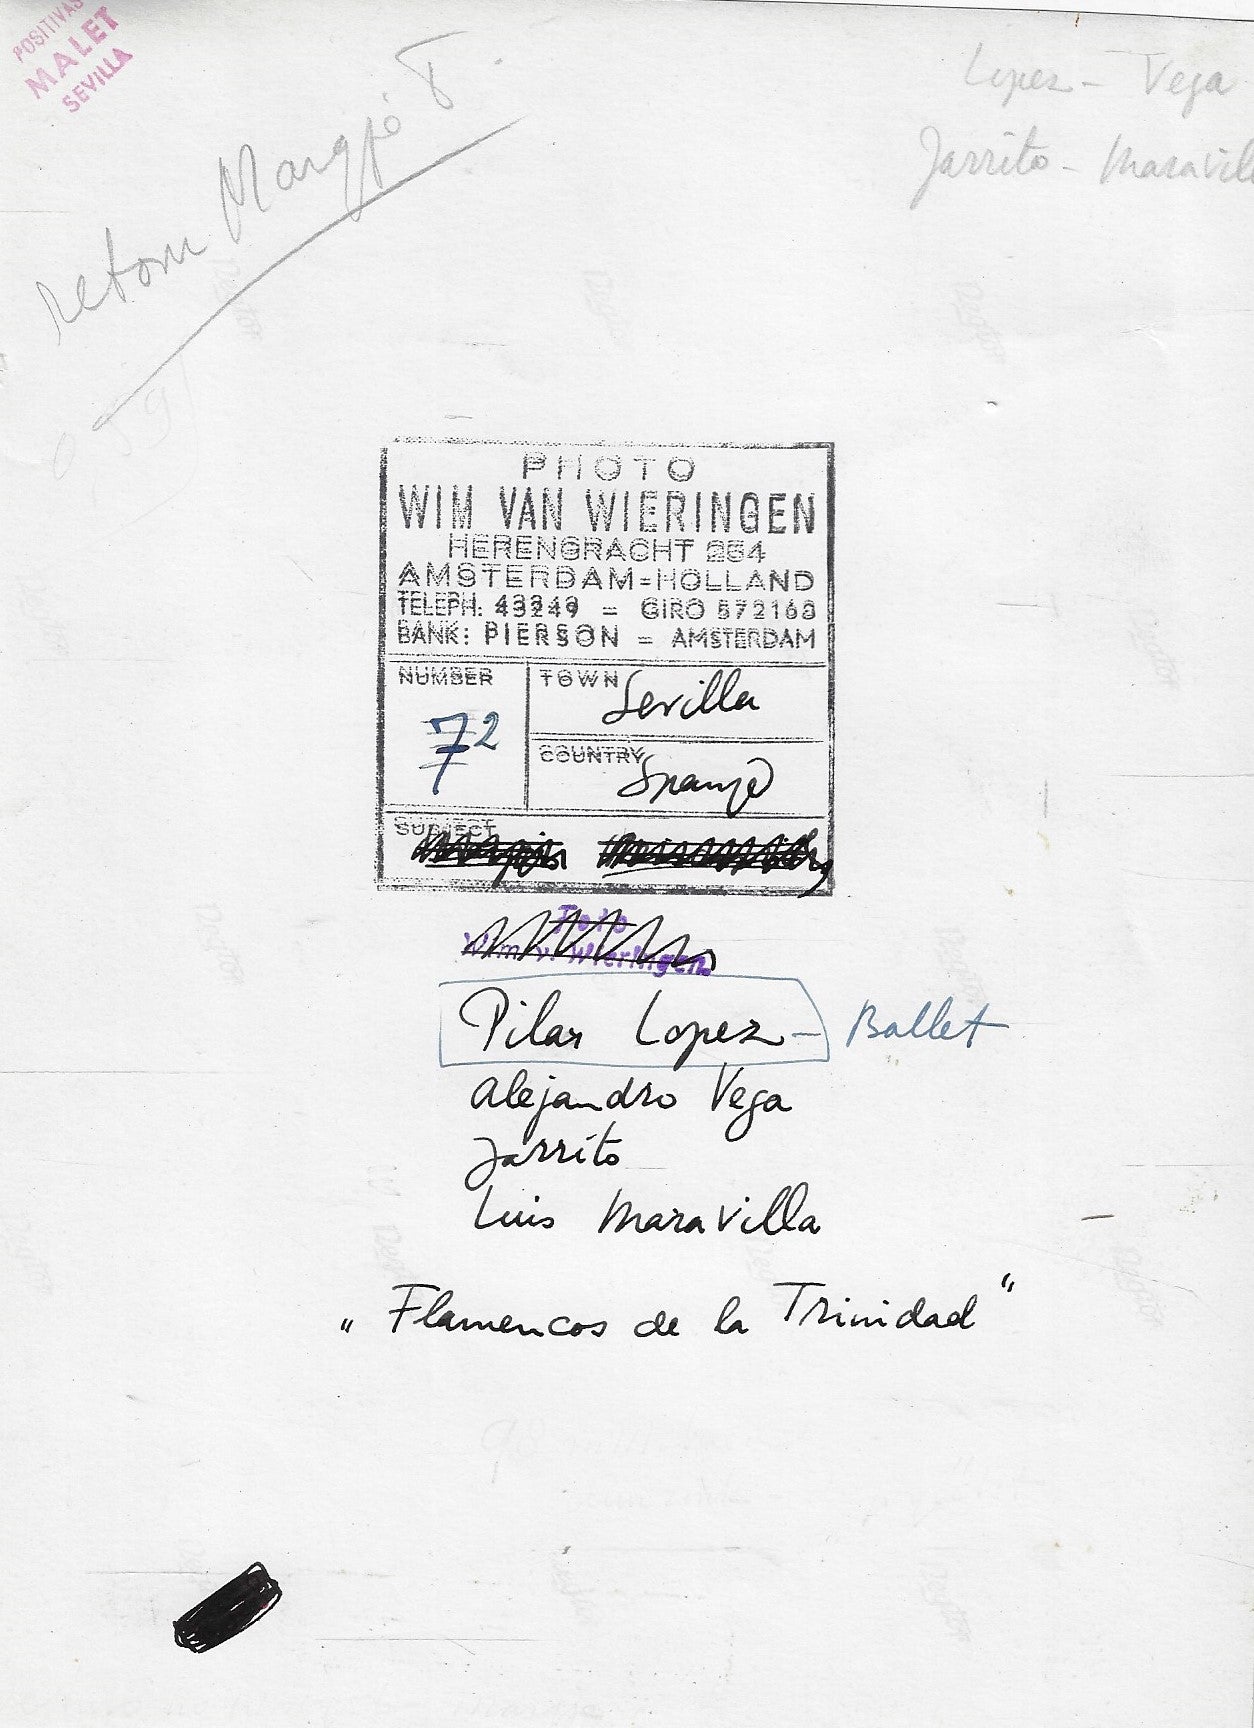 POSITIVAS
MALET
SEVILLA
Lopez - Vega
Jarrito - Maravill
retour Margjo T.
PHOTO
WIM VAN WIERINGEN
HERENGRACHT 254
AMSTERDAM=HOLLAND
TELEPH: 43249 = GIRO 572163
BANK: PIERSON = AMSTERDAM
NUMBER
72
TOWN Sevilla
COUNTRY Spanje
SUBJECT
Foto
Wim v. Wieringen
Pilar Lopez - Ballet
Alejandro Vega
Jarrito
Luis Maravilla
"Flamencos de la Trinidad"